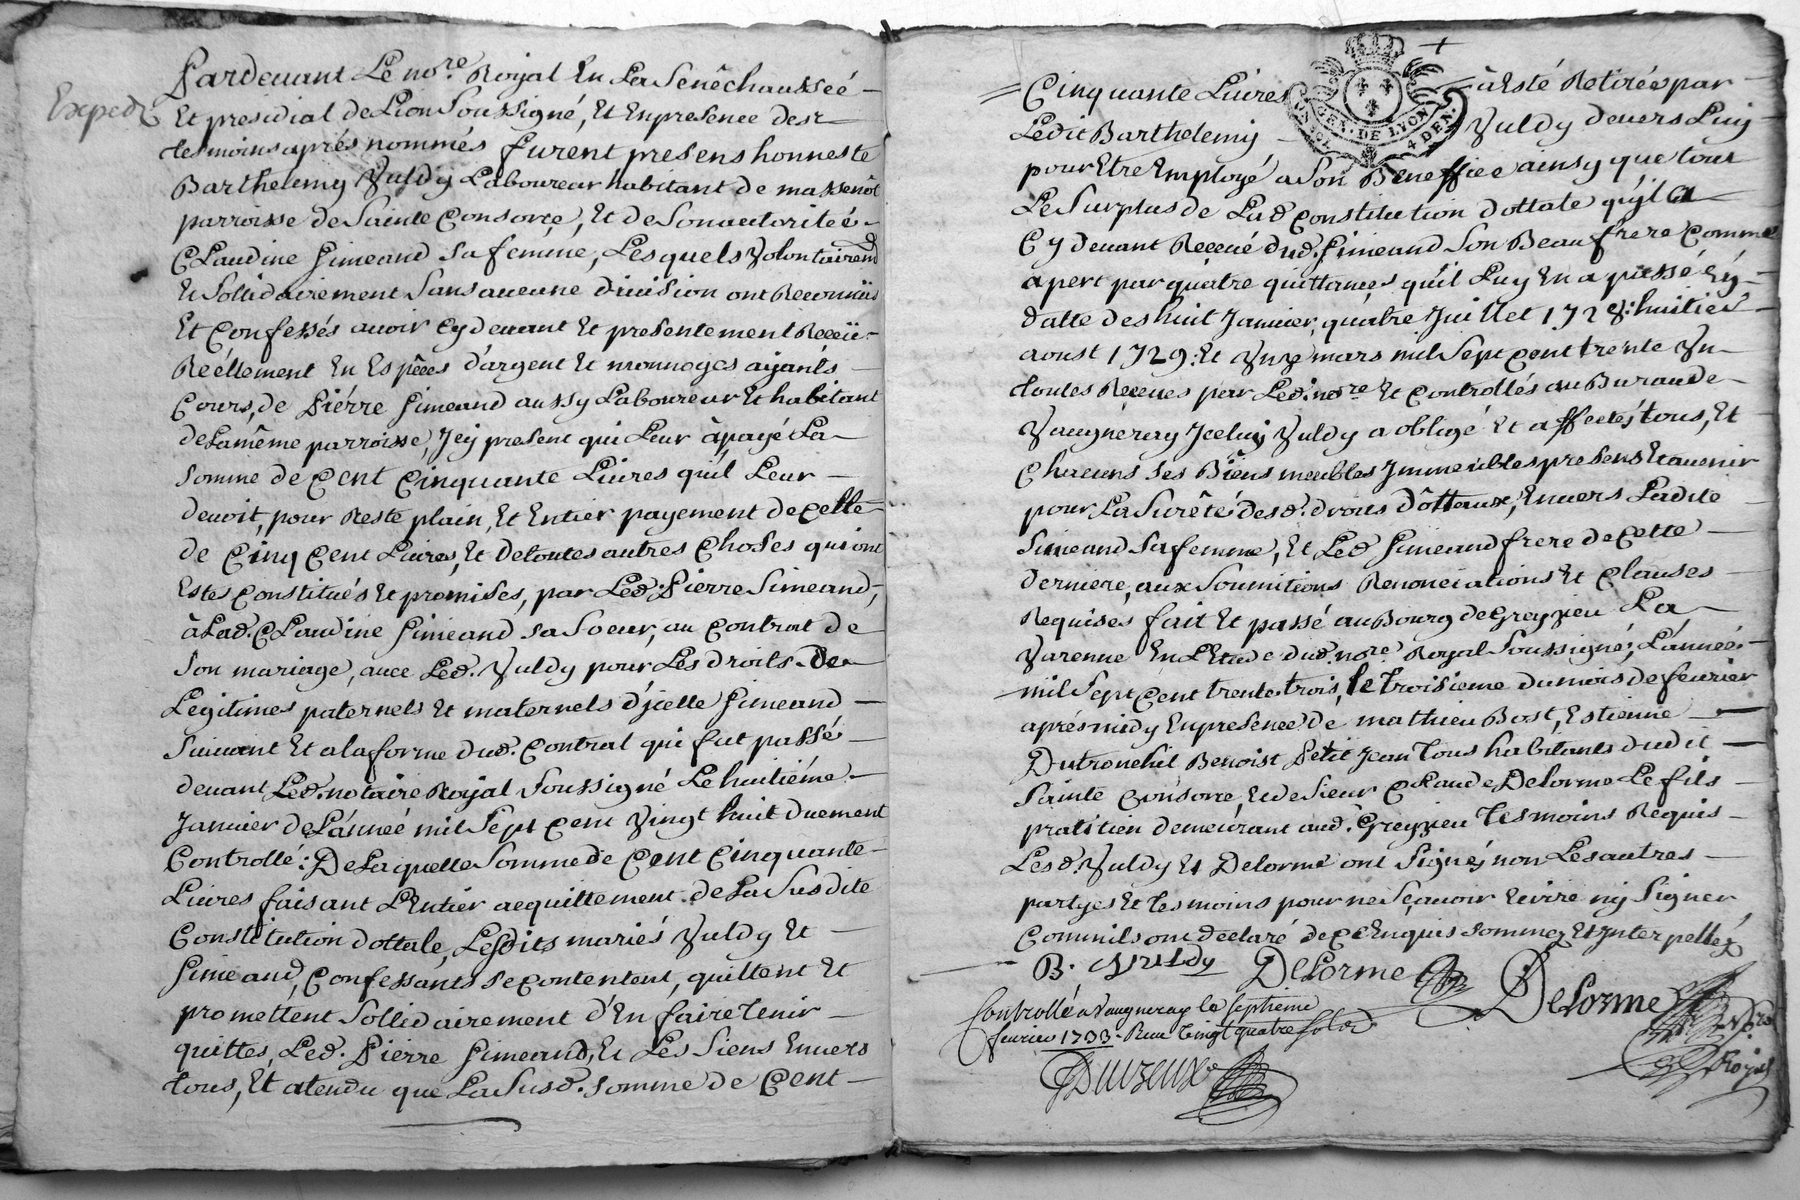 Expedié
Pardevant Le no.re Royal En La Senêchausseé
Et presidial de Lion Soussigné, Et Enpresence des
tesmoins aprés nommés furent presens honneste
Barthelemy Yuldy Laboureur habitant de massenôt
parroisse de Sainte Consorce, Et de Son autoriteé
Claudine Simeand sa femme, Lesquels Volontairem.
Et Sollidairement Sans aucune division ont Reconnüs
Et Confessés avoir Cy devant Et presentement Receü
Reéllement En Espêces d'argent Et monnoges ajants
Cours, de Pierre Simeand aussy Laboureur Et habitant
de La même parroisse, Jcy present qui Leur à payé La
Somme de Cent Cinquante Livres quil Leur
devoit, pour Reste plain, Et Entier payement de Celle
de Cinq Cent Livres, Et de toutes autres Choses qui ont
Estes Constitués Et promises, par Led. Pierre Simeand,
à Lad. Claudine Simeand sa Soeur, au Contrat de
Son mariage, avec Led. Yuldy pour Les droits de
Legitimes paternels Et maternels d'jcelle Simeand
Suivant Et a la forme dud. Contrat qui fut passé
devant Led. notaire Royal Soussigné Le huitiéme
Janvier de L'anneé mil Sept Cent Vingt huit duement
Controllé: De Laquelle Somme de Cent Cinquante
Livres faisant L'Entier acquittement de La Susdite
Constitution dottale, Lesdits mariés Yuldy Et
Simeand, Confessants se Contentent, quittent Et
promettent Sollidairement d'En faire tenir
quittes, Led. Pierre Simeand, Et Les Siens Envers
tous, Et atendu que La Susd. Somme de Cent
Cinquante Livres à Esté Retirée par
GEN. DE LYON
4 DEN.
Ledit Barthelemy Yuldy devers Luy
pour Etre Employé a Son Beneffice ainsy que tout
Le Surplus de Lad. Constitution dottale qu'jl a
Cy devant Receué dud. Simeand Son Beau frere Comme
apert par quatre quittances qu'il Luy En a passé Ey
datte des huit Janvier, quatre Juillet 1728: huitiéi
aoust 1729: Et Ynze mars mil Sept Cent trente Yn
toutes Reçeues par Ledi. no.re Et Controllés au Buraude
Vaugneray Jceluy Yuldy a obligé Et affectés tous, Et
Chacuns Ses Biêns meubles Jmmeubles presens Et avenir
pour La Surêté desd. droits Dôttaux, Envers Ladite
Simeand Sa femme, Et Led. Simeand frere de Cette
derniere, aux Soumitions Renonciations Et Clauses
Requises fait Et passé au Bourg de Grezieu La
Varenne En L'Etude dud. no.re Royal Soussigné, L'anneé
mil Sept Cent trente trois, le Troisieme du mois de fevrier
aprés midy Enpresence de mathieu Bost, Estienne
Dutronchil Benoist Petit Jean tous habitants dudit
Sainte Consorce, Et de Sieur Claude Delorme Le fils
pratitien demeurant aud. Grezieu tesmoins Requis
Lesd. Yuldy Et Delorme ont Signé, non Les autres
partyes Et tesmoins pour ne Sçavoir Ecrire ny Signer
Comm'ils ont declaré de Ce Enquis Sommez Et Jnterpellés
B. Yuldy Delorme Delorme
No.re
Royal
Controllé a Vaugneray le Septiéme
fevrier 1733. Receu Vingt quatre Sols
Duvzeux